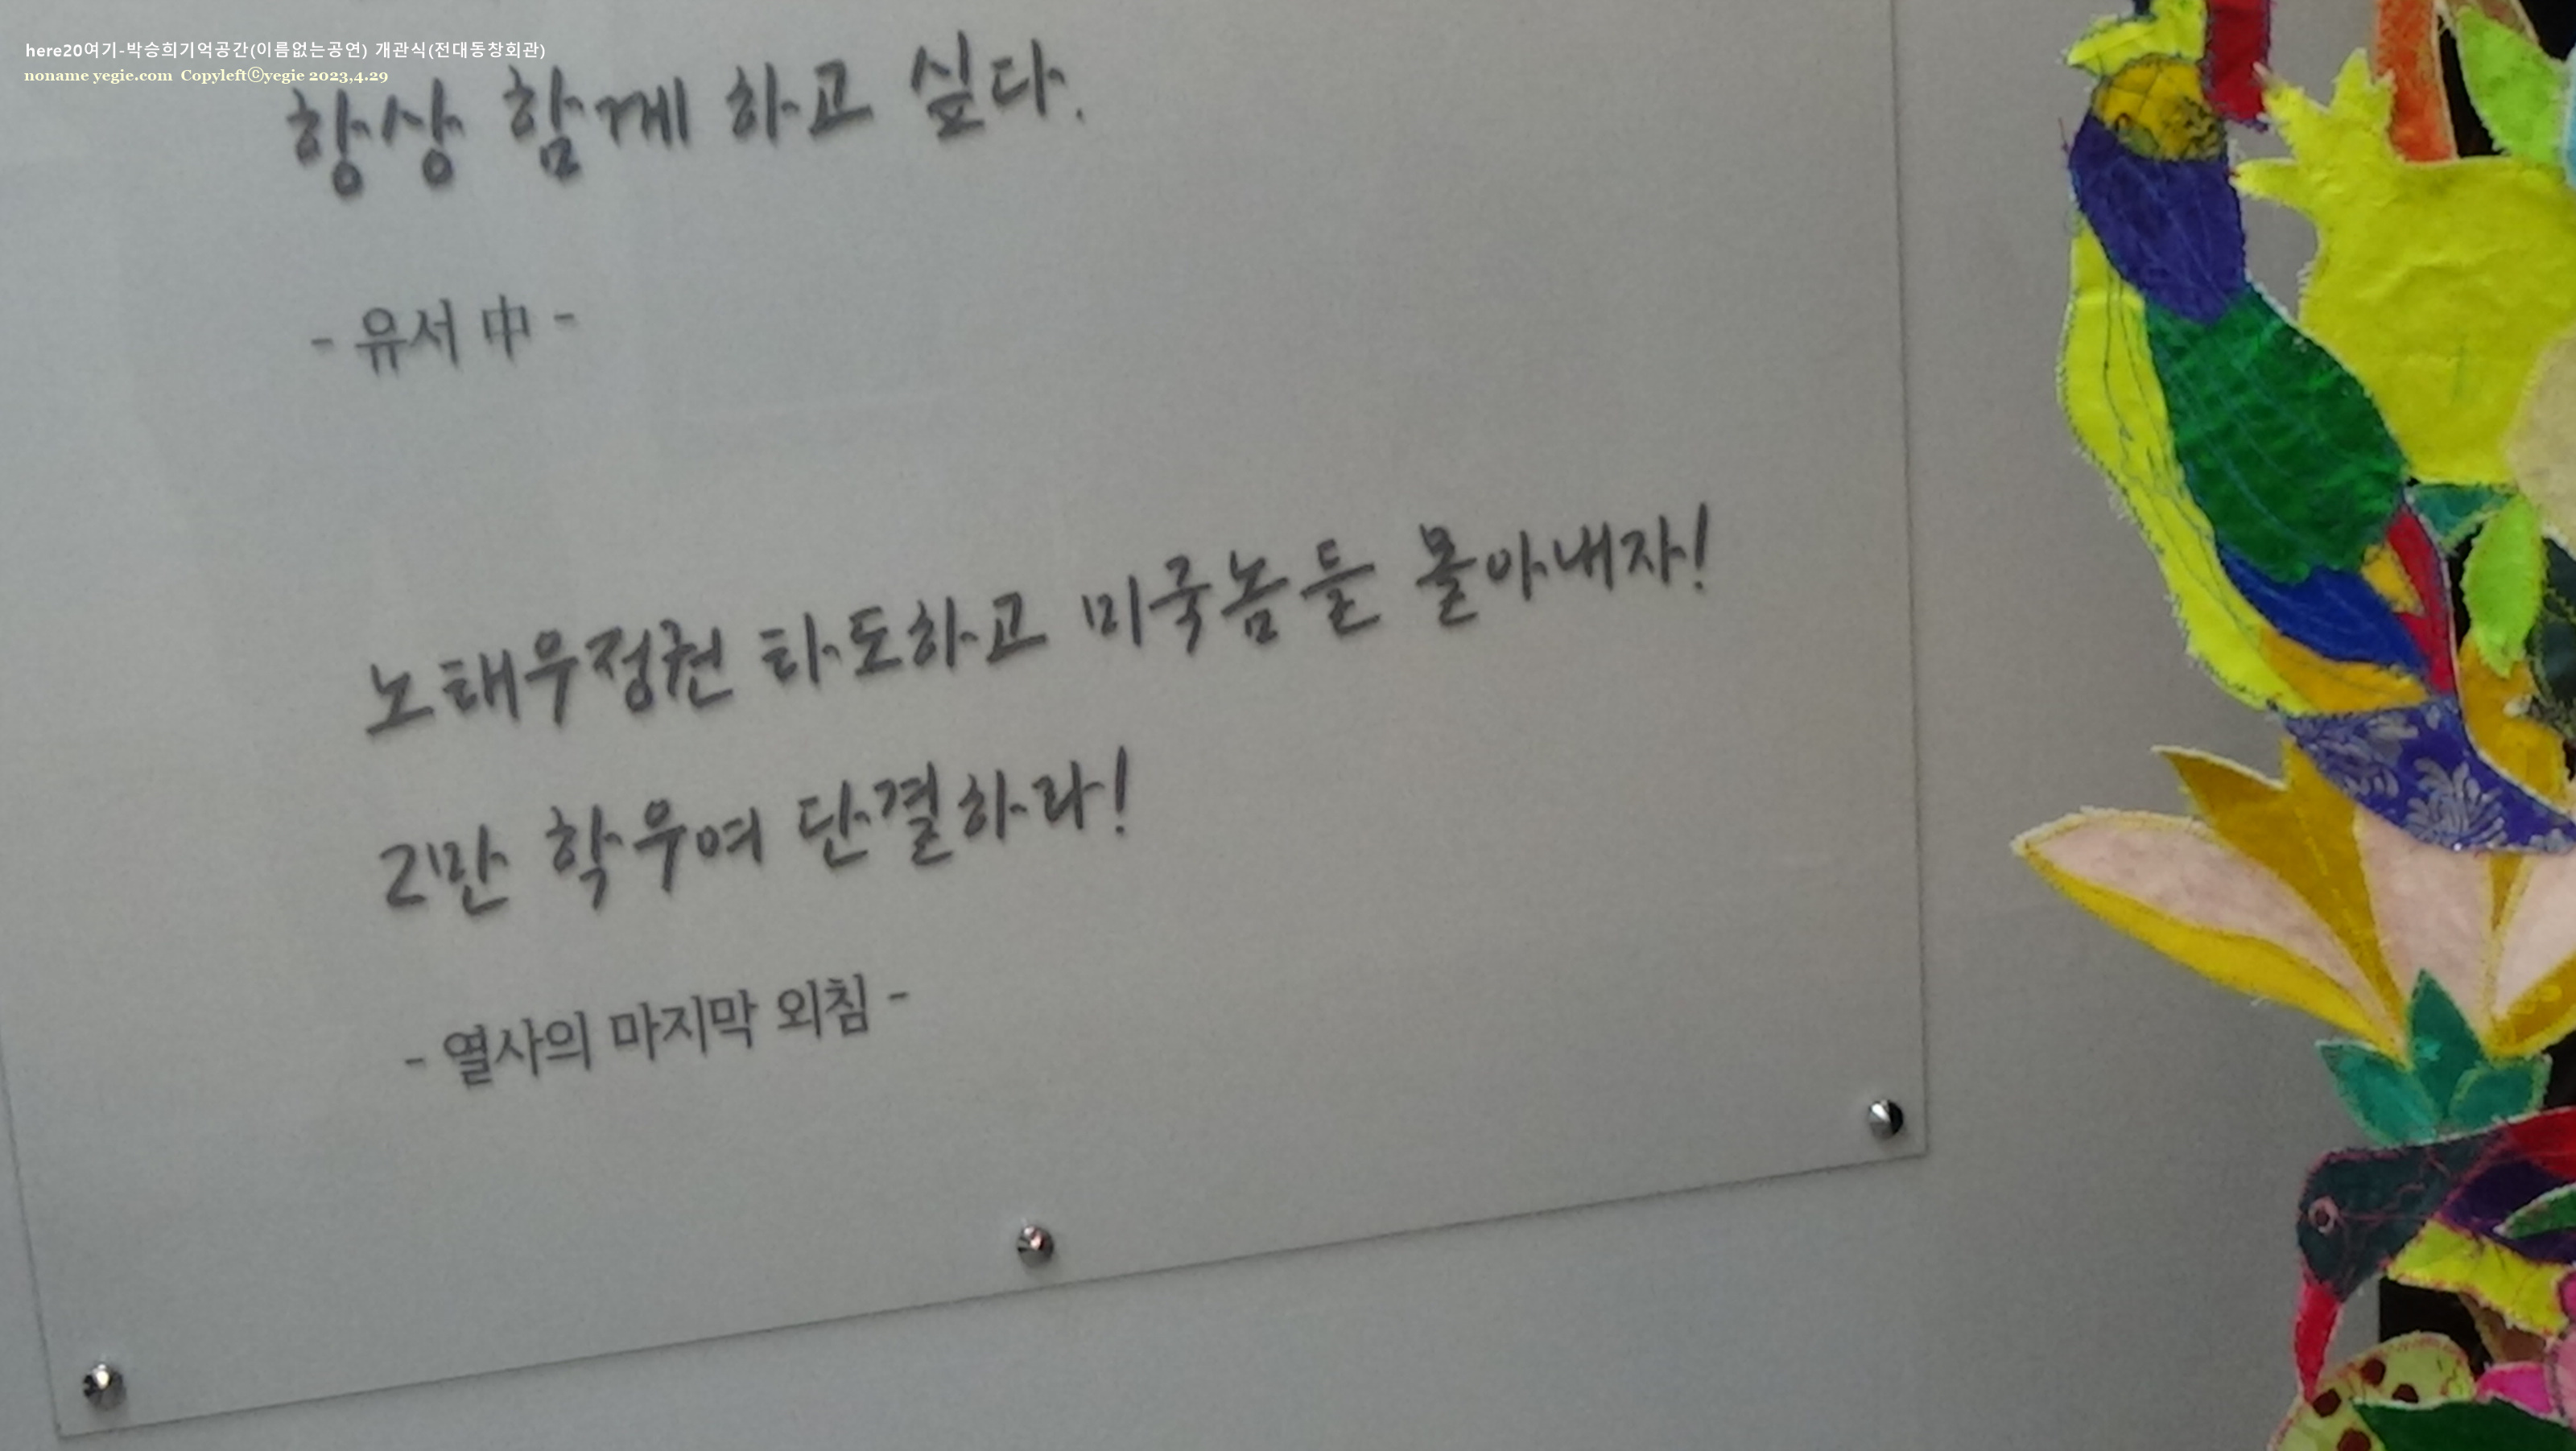 here20여기-박승희기억공간(이름없는공연) 개관식(전대동창회관)
noname yegie.com Copyleftⓒyegie 2023,4.29
항상 함께 하고 싶다.
- 유서 中 -
노태우정권 타도하고 미국놈들 몰아내자!
2만 학우여 단결하라!
- 열사의 마지막 외침 -